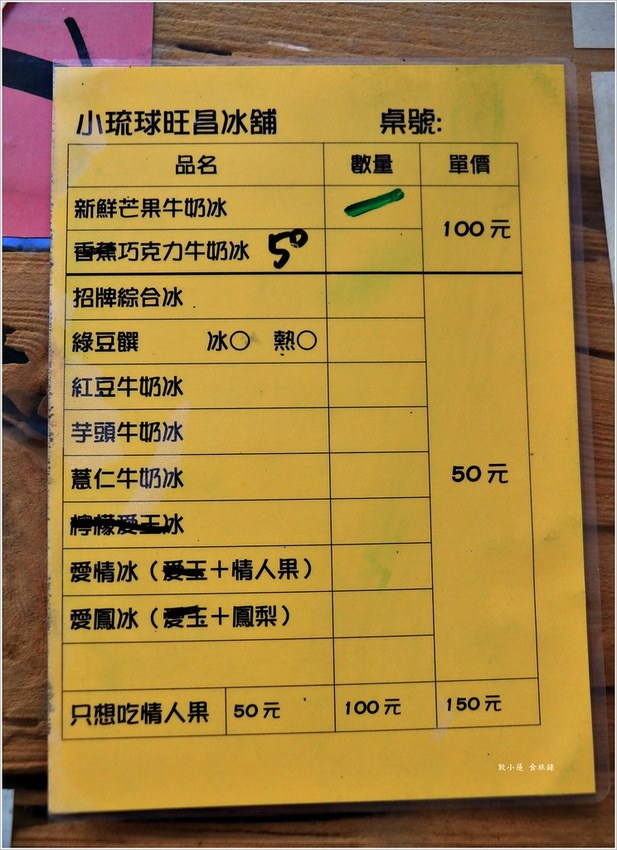 小琉球旺昌冰舖 桌號:
品名 數量 單價
新鮮芒果牛奶冰 100元
香蕉巧克力牛奶冰 50
招牌綜合冰
綠豆饌 冰○ 熱○
紅豆牛奶冰
芋頭牛奶冰
薏仁牛奶冰 50元
檸檬愛玉冰
愛情冰（愛玉＋情人果）
愛鳳冰（愛玉＋鳳梨）
只想吃情人果 50元 100元 150元
敦小蓮 食旅錄